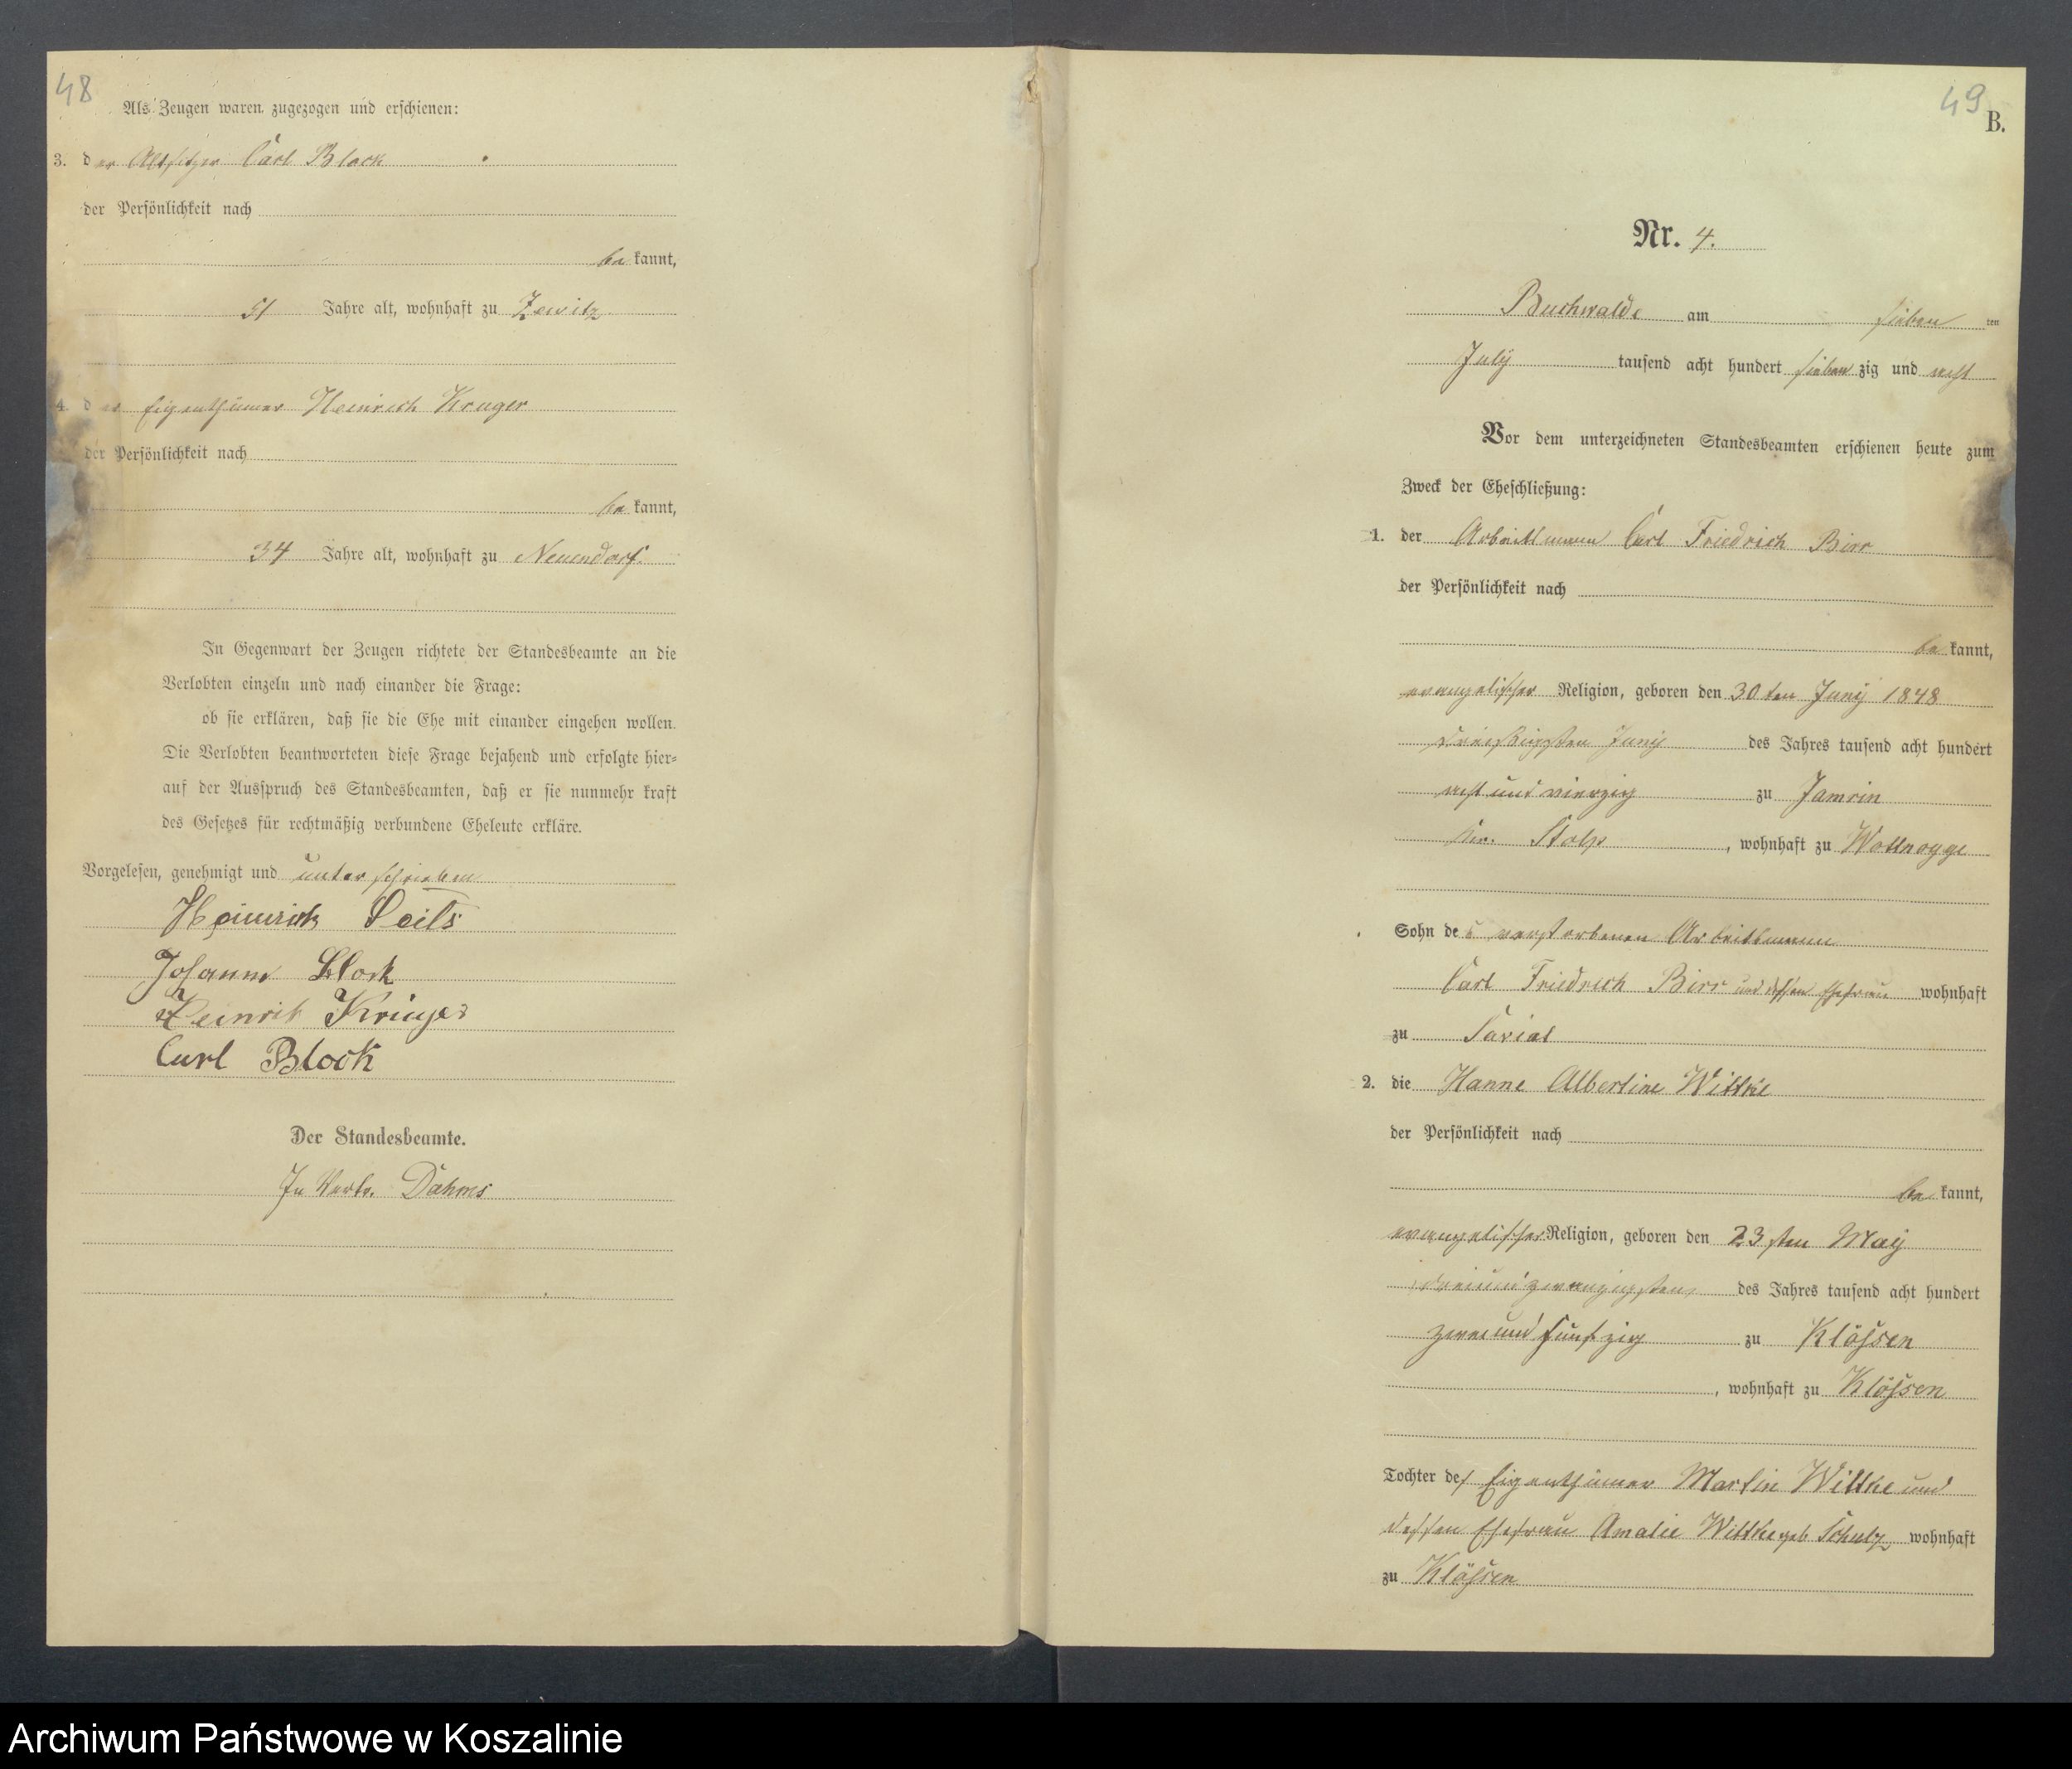 48
Als Zeugen waren zugezogen und erschienen:
3. der Altsitzer Carl Block
der Persönlichkeit nach
bekannt,
51 Jahre alt, wohnhaft zu Zewitz
4. der Eigenthümer Heinrich Kruger
der Persönlichkeit nach
bekannt,
34 Jahre alt, wohnhaft zu Neuendorf.
In Gegenwart der Zeugen richtete der Standesbeamte an die
Verlobten einzeln und nach einander die Frage:
ob sie erklären, daß sie die Ehe mit einander eingehen wollen.
Die Verlobten beantworteten diese Frage bejahend und erfolgte hier-
auf der Ausspruch des Standesbeamten, daß er sie nunmehr kraft
des Gesetzes für rechtmäßig verbundene Eheleute erkläre.
Vorgelesen, genehmigt und unterschrieben
Heinrich
Johann Block
Heinrih Krüger
Carl Block
Der Standesbeamte.
In Vertr. Dahms
49
B.
Nr. 4.
Buchwalde am sieben ten
July tausend acht hundert siebenzig und acht
Vor dem unterzeichneten Standesbeamten erschienen heute zum
Zweck der Eheschließung:
1. der Arbeitsmann Carl Friedrich Birr
der Persönlichkeit nach
bekannt,
evangelischer Religion, geboren den 30ten Junÿ 1848
dreißigsten Junÿ des Jahres tausend acht hundert
acht und vierzig zu Jamrin
Kr. Stolp, wohnhaft zu Wollnogge
Sohn des verstorbenen Arbeitsmann
Carl Friedrich Birr und dessen Ehefrau wohnhaft
zu
2. die Hanne Albertine Wittke
der Persönlichkeit nach
bekannt,
evangelischer Religion, geboren den 23sten Maÿ
dreiundzwanzigsten des Jahres tausend acht hundert
zwei und fünfzig zu Klößsen
, wohnhaft zu Klößsen
Tochter des Eigenthümer Martin Wittke und
dessen Ehefrau Amalie Wittke geb Schulz wohnhaft
zu Klößsen
Archiwum Państwowe w Koszalinie